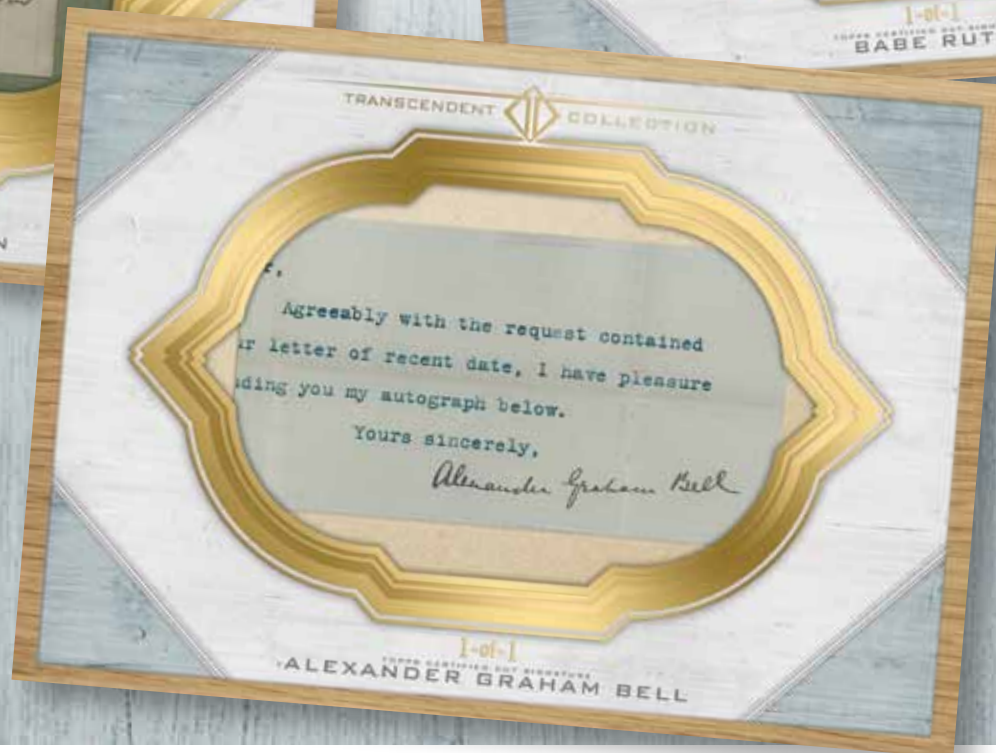 1-of-1
TOPPS CERTIFIED CUT SIGNATURE
BABE RUT
N
TRANSCENDENT COLLECTION
r.
Agreeably with the request contained
ur letter of recent date, I have pleasure
ding you my autograph below.
Yours sincerely,
Alexander Graham Bell
1-of-1
TOPPS CERTIFIED CUT SIGNATURE
ALEXANDER GRAHAM BELL